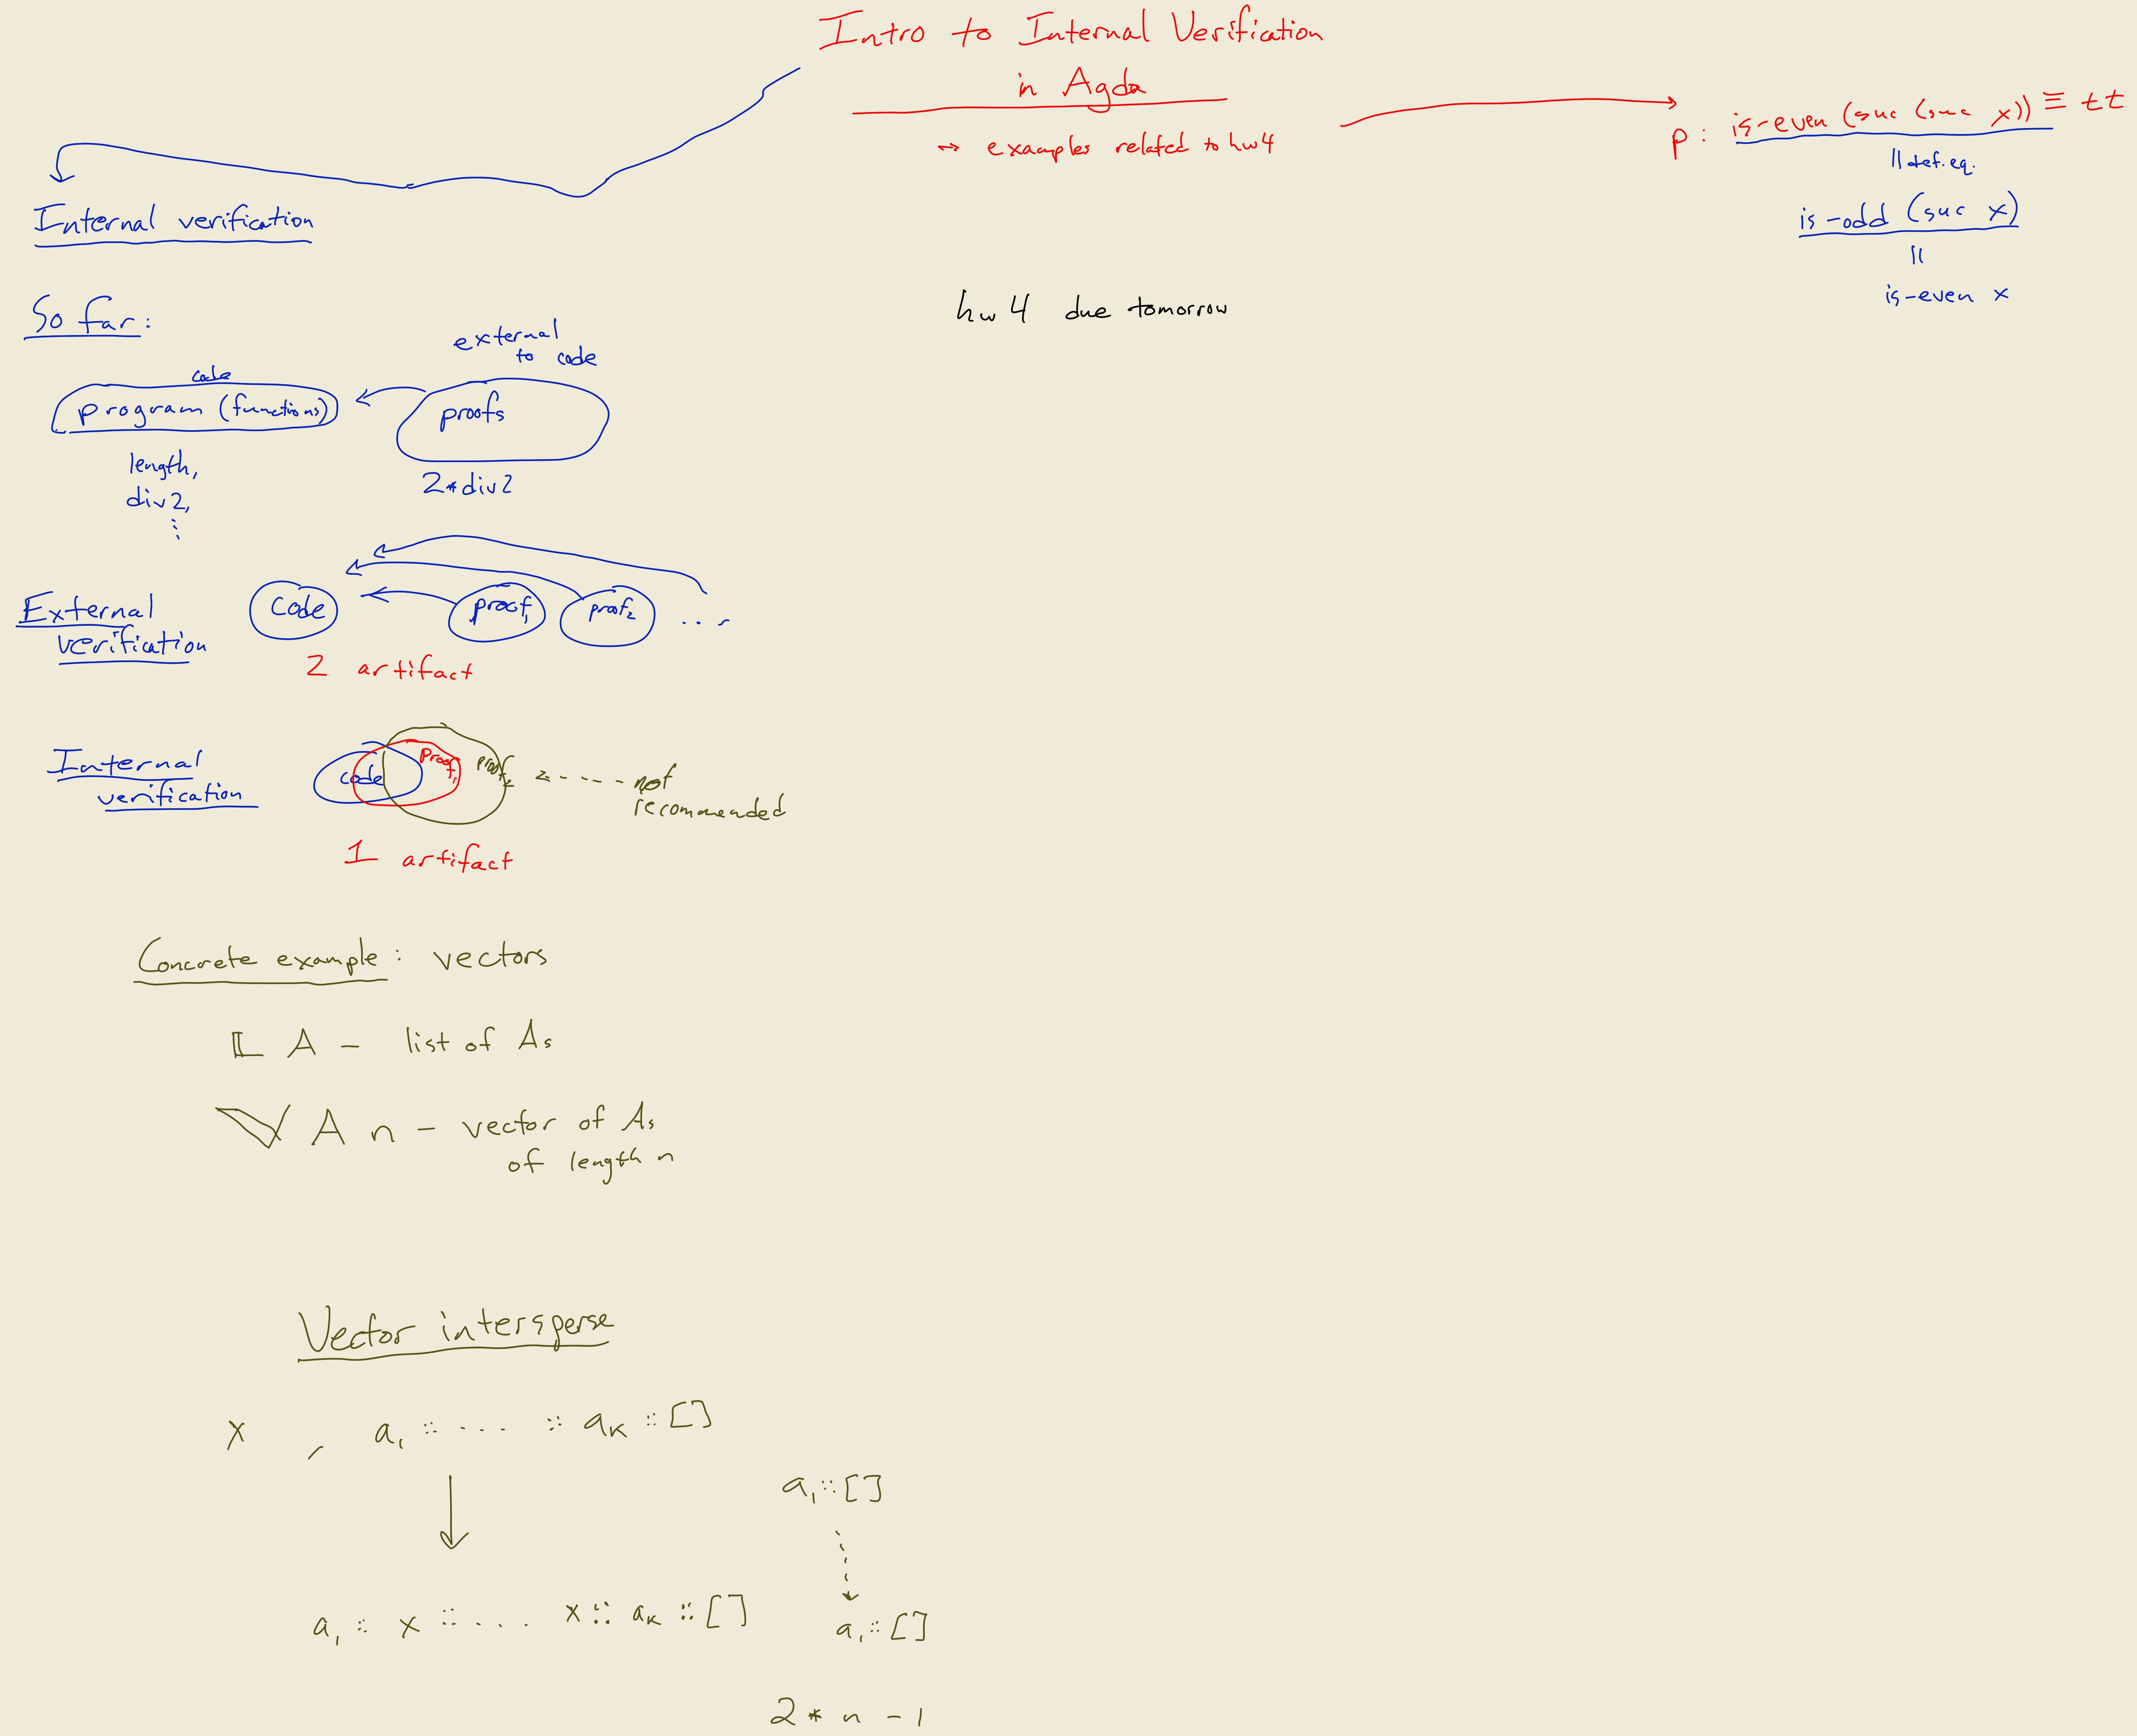 Intro to Internal Verification
in Agda
↔ examples related to hw4
p : is-even (suc (suc x)) ≡ tt
|| def. eq.
is-odd (suc x)
||
is-even x
hw 4 due tomorrow
Internal verification
So far:
code
program (functions)
external
to code
proofs
length,
div2,
⋮
2*div2
External
verification
code
proof₁
proof₂
...
2 artifact
Internal
verification
code
proof₁
proof₂
not
recommended
1 artifact
Concrete example: vectors
𝕃 A - list of As
𝕍 A n - vector of As
of length n
Vector intersperse
x , a₁ :: ... :: aₖ :: []
a₁ :: []
a₁ :: x :: ... x :: aₖ :: []
a₁ :: []
2 * n - 1